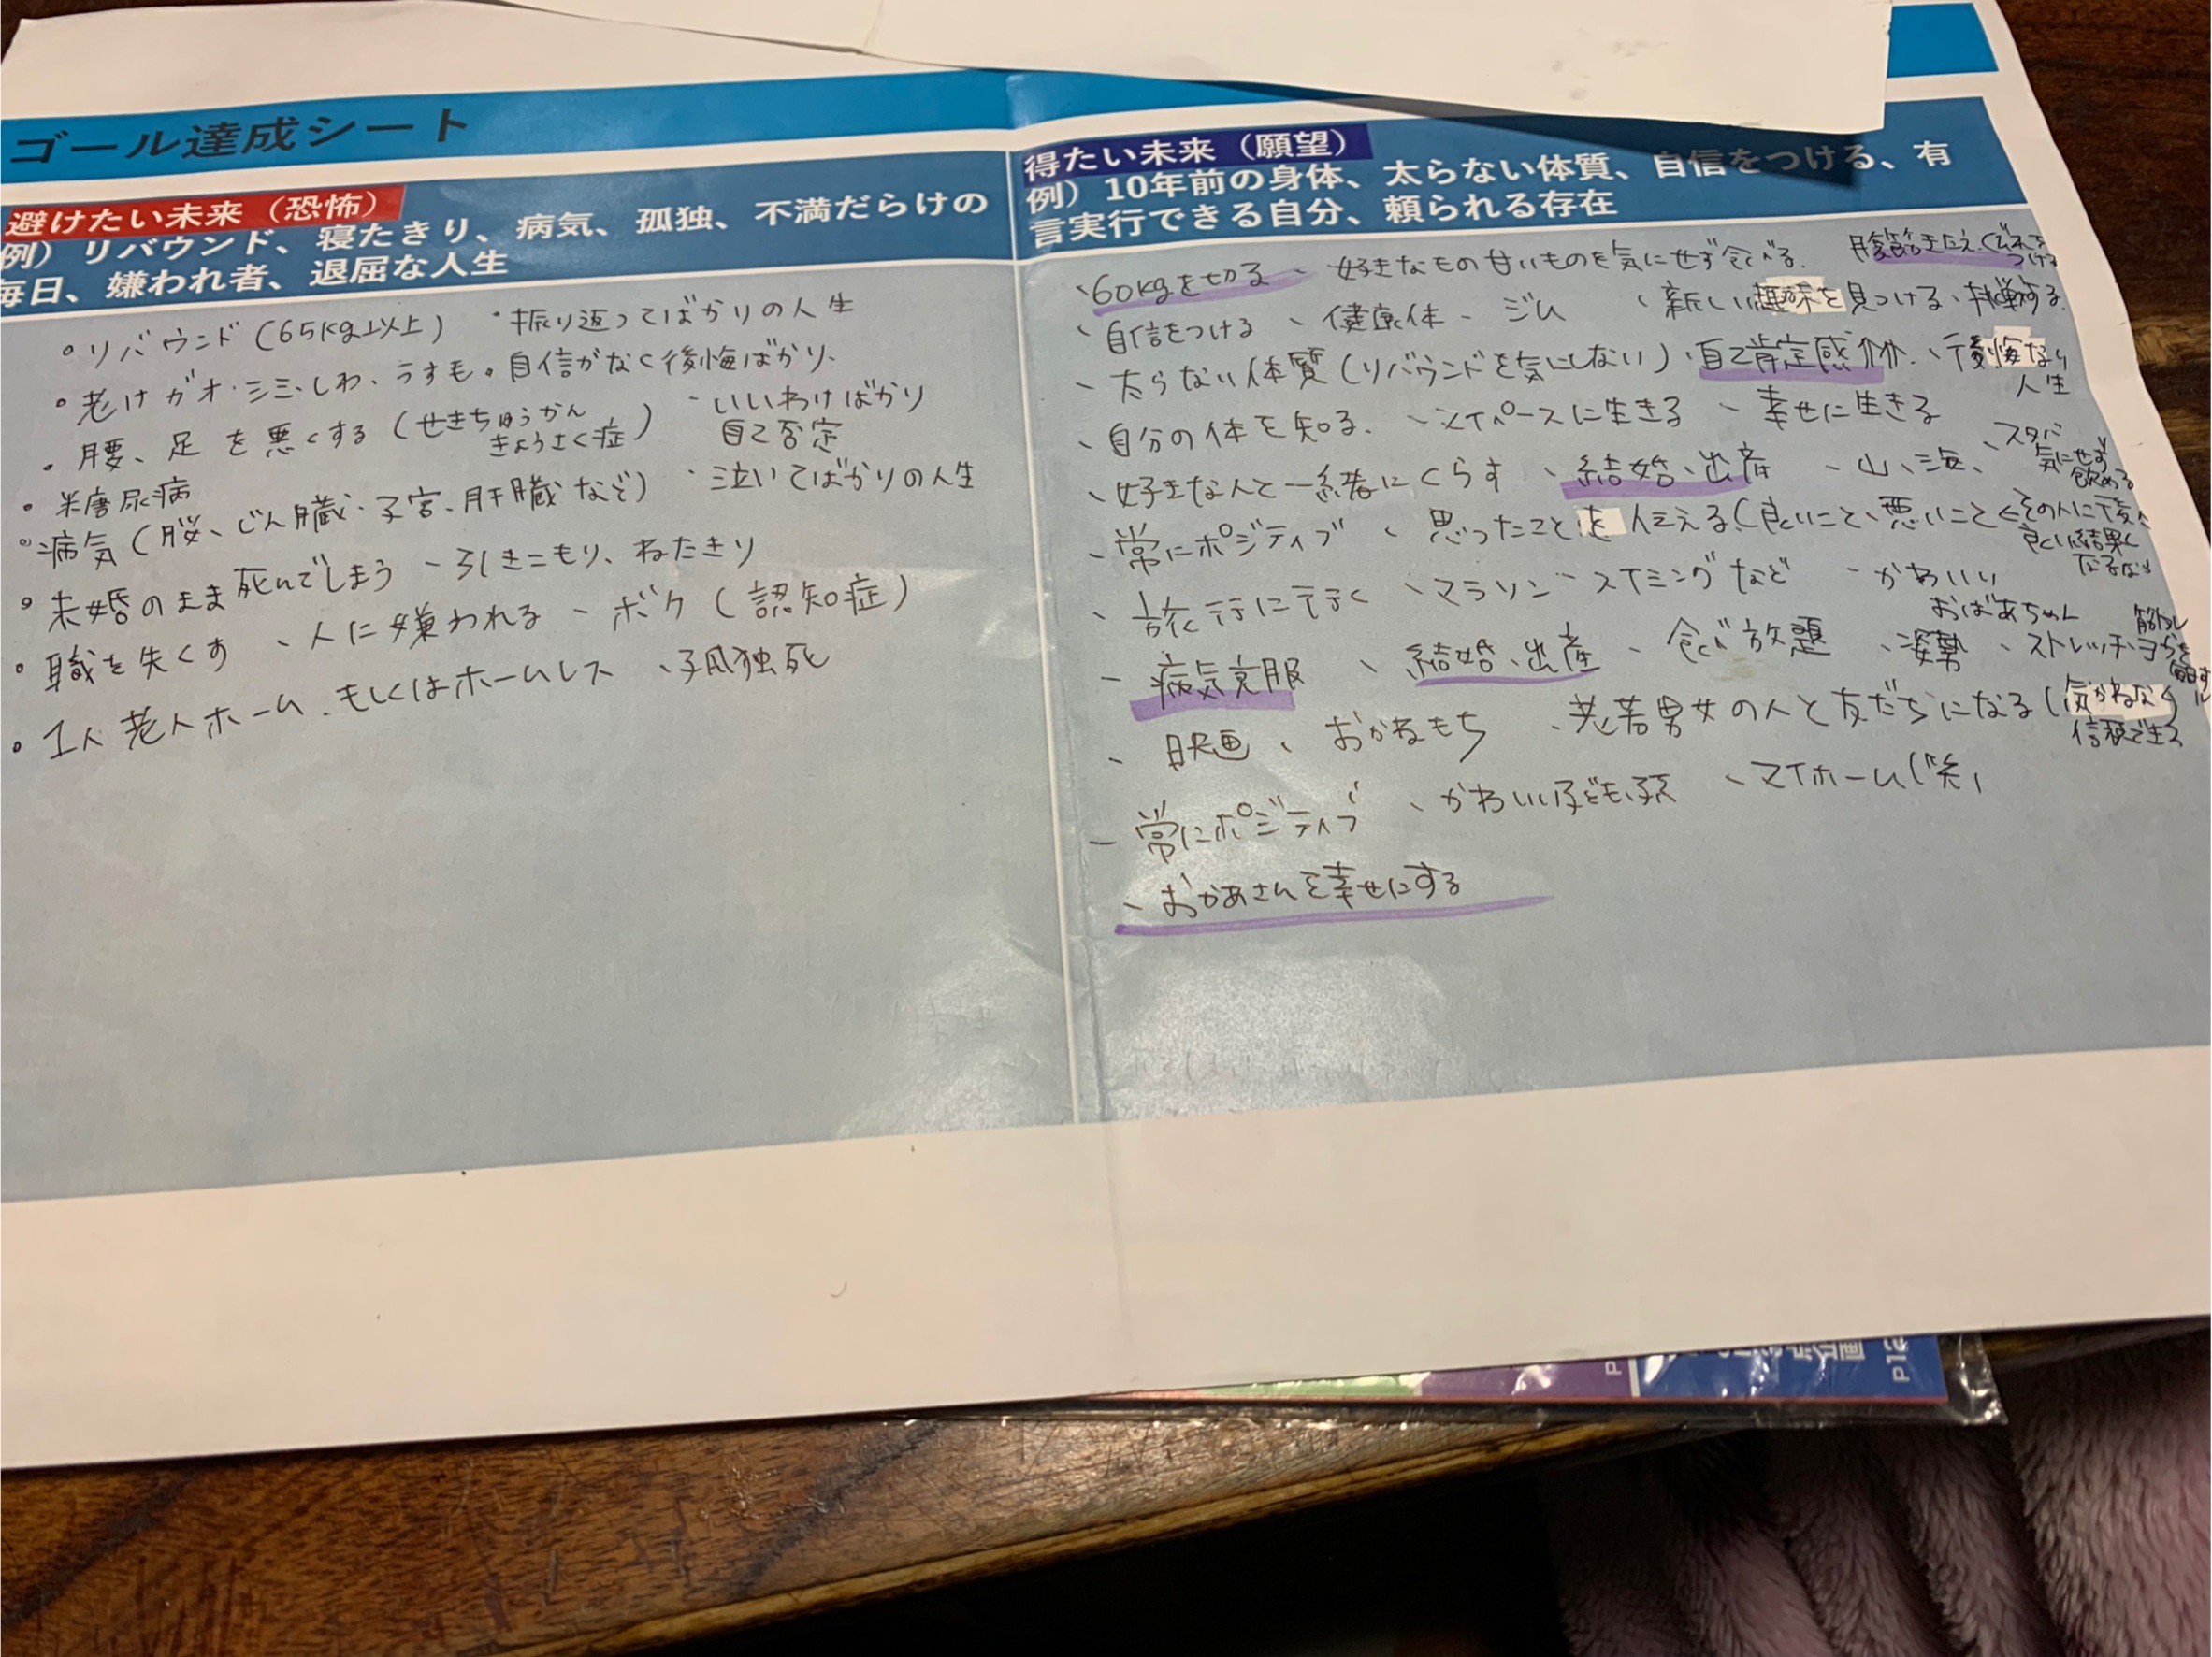 ゴール達成シート
避けたい未来（恐怖）
例）リバウンド、寝たきり、病気、孤独、不満だらけの
毎日、嫌われ者、退屈な人生
・リバウンド（65kg以上） ・振り返ってばかりの人生
・老けガオ・シミ・しわ・うす毛。自信がなく後悔ばかり、
・腰、足を悪くする（せきちゅうかん
きょうさく症）
・いいわけばかり
自己否定
・糖尿病
・病気（脳、じん臓・子宮、肝臓など） ・泣いてばかりの人生
・未婚のまま死んでしまう ・引きこもり、ねたきり
・職を失くす ・人に嫌われる ・ボケ（認知症）
・1人老人ホーム、もしくはホームレス ・孤独死
得たい未来（願望）
例）10年前の身体、太らない体質、自信をつける、有
言実行できる自分、頼られる存在
・60kgを切る ・好きなもの甘いものを気にせず食べる
・自信をつける ・健康体 ・ジム ・新しい趣味を見つける、挑戦する
・太らない体質（リバウンドを気にしない）・自己肯定感 ・後悔ない
人生
・自分の体を知る ・マイペースに生きる ・幸せに生きる
・スタバ
気にせず
飲める
・好きな人と一緒にくらす ・結婚、出産 ・山、海、
・常にポジティブ ・思ったことを伝える（良いこと、悪いこと
良い結果に
なるなら
・旅行に行く ・マラソン スイミングなど ・かわいい
おばあちゃん
・病気克服 ・結婚、出産 ・食べ放題 ・姿勢 ・ストレッチ・ヨガを
・映画 ・おかねもち ・老若男女の人と友だちになる（気がねなく
・常にポジティブ ・かわいい子ども、孫 ・マイホーム（笑）
・おかあさんを幸せにする